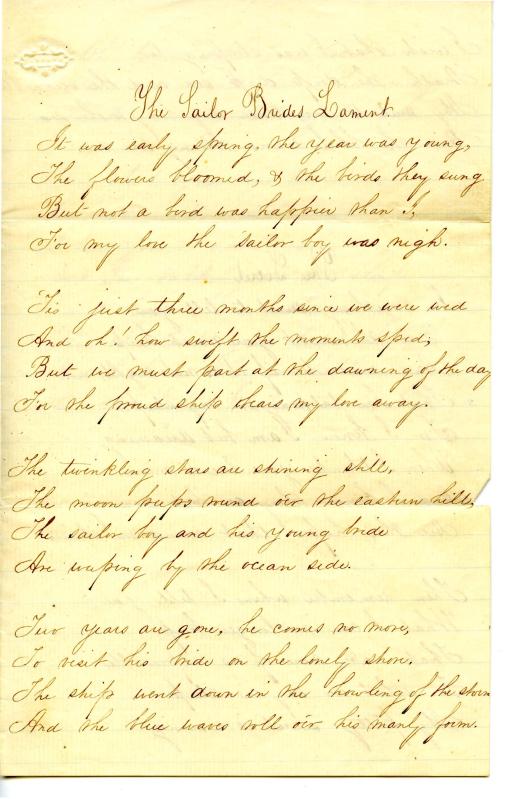 The Sailor Brides Lament.
It was early spring, the year was young,
The flowers bloomed, & the birds they sung
But not a bird was happier than I,
For my love the sailor boy was nigh.
Tis just three months since we were wed
And oh! how swift the moments sped,
But we must part at the dawning of the day
For the proud ship bears my love away.
The twinkling stars are shining still,
The moon peeps round o'er the eastern hill,
The sailor boy and his young bride
Are weeping by the ocean side.
Two years are gone, he comes no more,
To visit his bride on the lonely shore.
The ship went down in the howling of the storm
And the blue waves roll o'er his manly form.